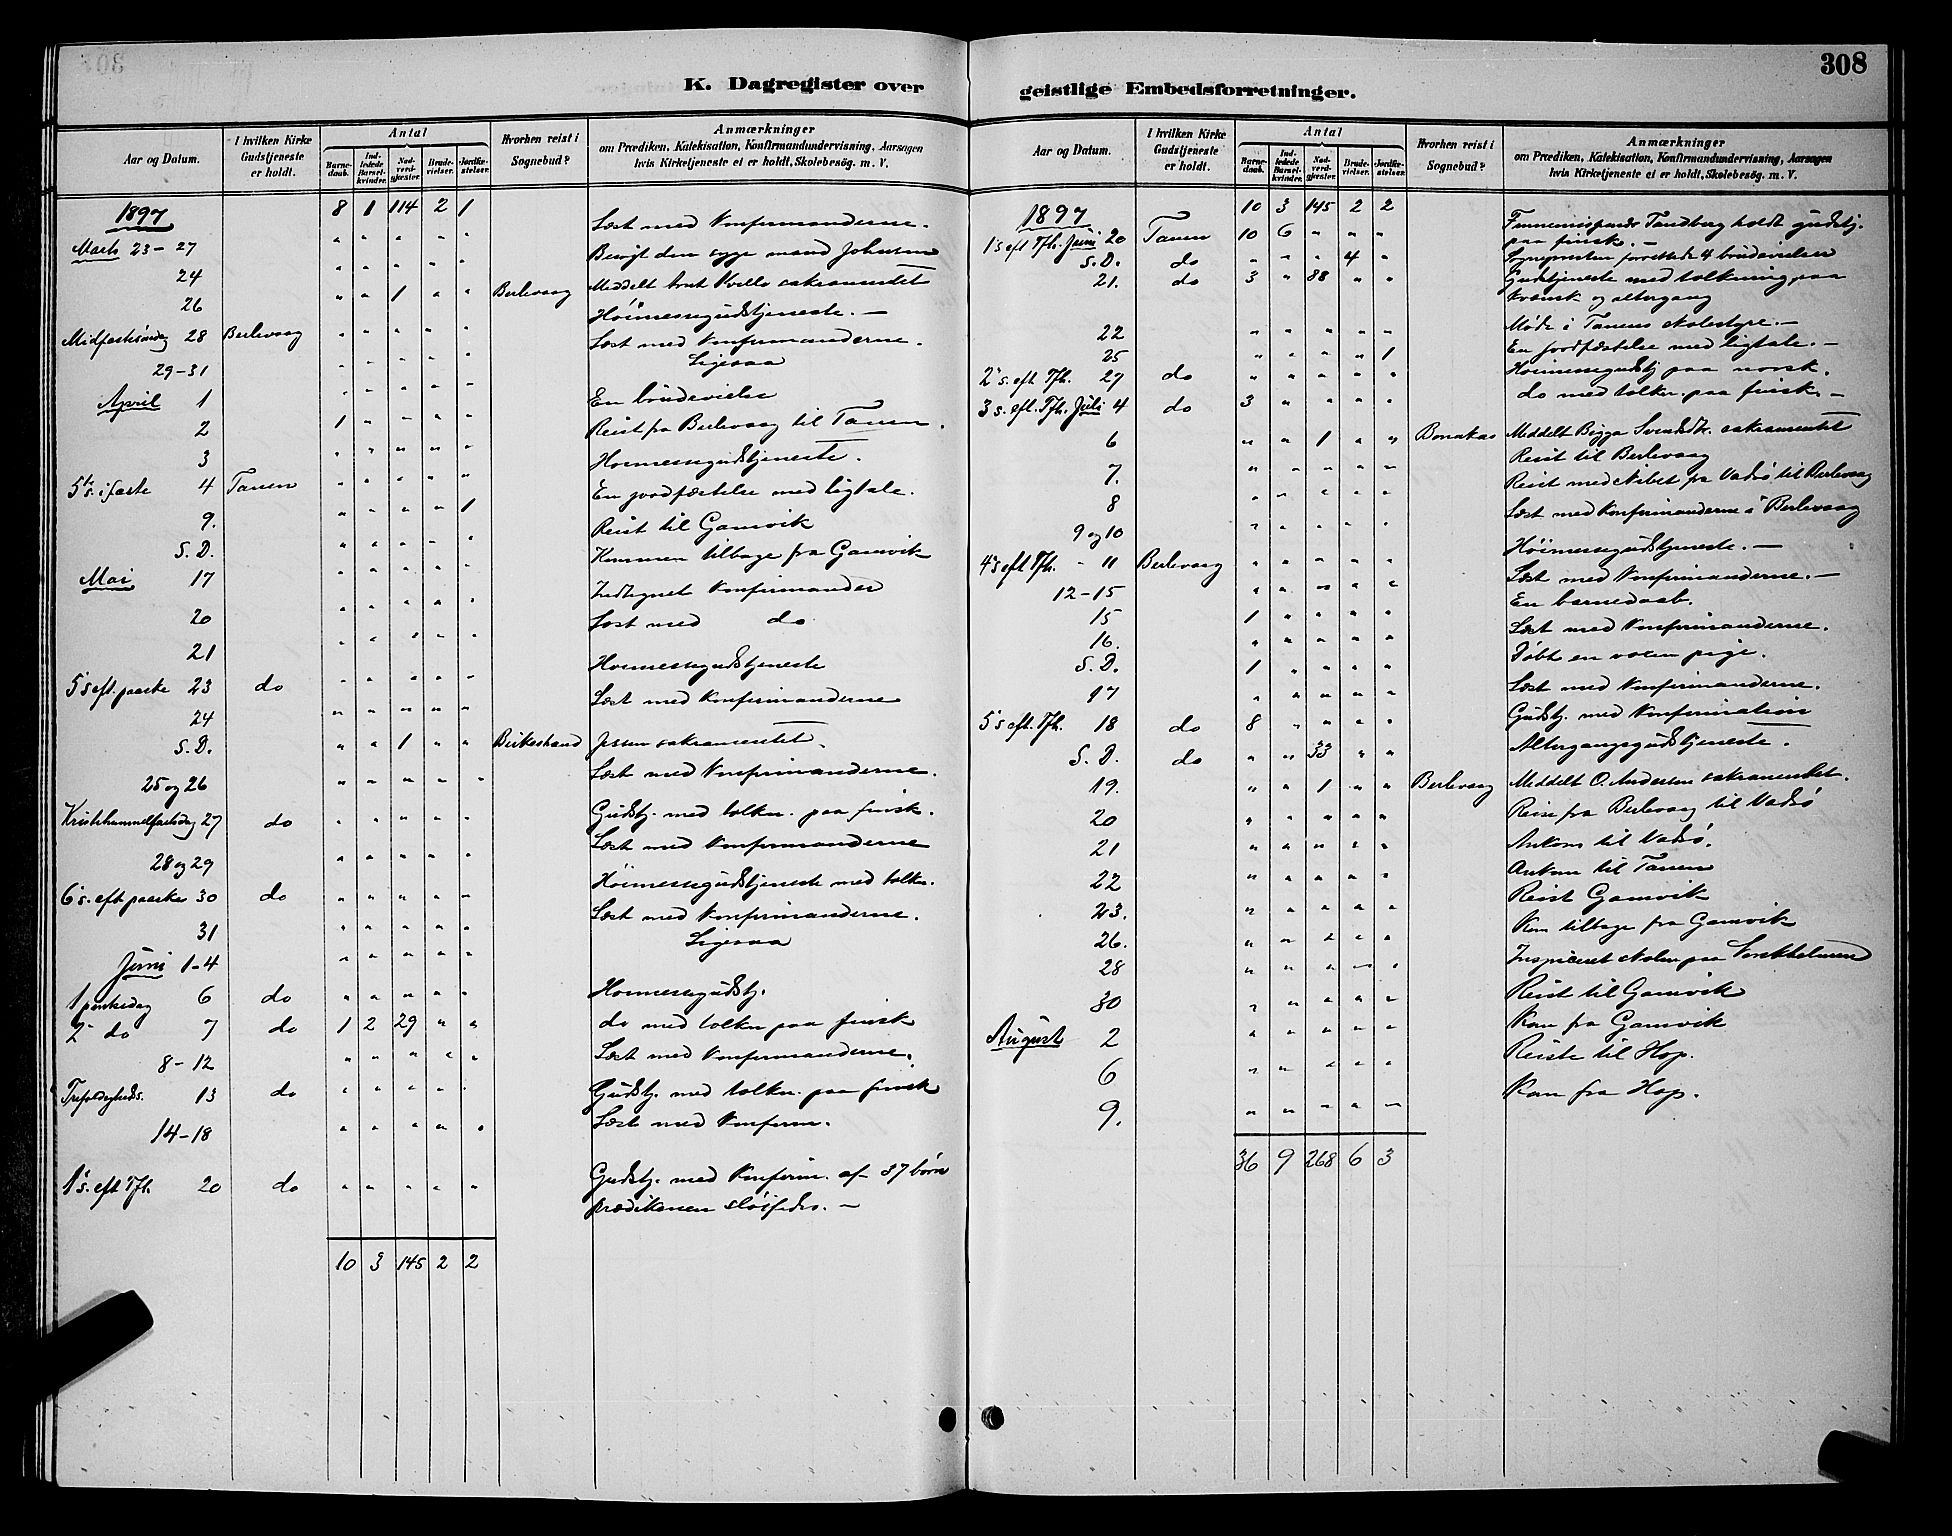 308
K. Dagregister over
Aar og Datum.
I hvilken Kirke
Gudstjeneste
er holdt.
Antal
Barne-
daab.
Ind-
ledede
Barsel-
kvinder.
Nad-
verd-
gjester.
Brude-
vielser.
Jordfæ-
stelser.
Hvorhen reist i
Sognebud?
Anmærkninger
om Prædiken, Katekisation, Konfirmandundervisning, Aarsagen
hvis Kirketjeneste ei er holdt, Skolebesøg. m. V.
1897 8 1 114 2 1
Marts 23-27 " " " " " Læst med Konfirmanderne.
24 " " " " " Besøgt den syge mand Johnsen
26 " " 1 " " Berlevaag Meddelt sakramentet
Midfastesøndag 28 Berlevaag " " " " " Høimessegudstjeneste. —
29-31 " " " " " Læst med Konfirmanderne.
April 1 " " " " " Ligesaa
2 1 " " " " En brudevielse
3 " " " " " Reist fra Berlevaag til Tanen.
5te s. i faste 4 Tanen " " " " " Høimessegudstjeneste.
9. " " " " 1 En jordfæstelse med ligtale.
S. D. " " " " " Reist til Gamvik
Mai 17 " " " " " Kommen tilbage fra Gamvik
20 " " " " " Indtegnet Konfirmander
21 " " " " " Læst med do
5 s. eft. paaske 23 do " " " " " Høimessegudstjeneste
24 " " " " " Læst med Konfirmanderne
S. D. " " 1 " " Birkestrand Jessen sakramentet.
25 og 26 " " " " " Læst med Konfirmanderne.
Kristihimmelfartsdag 27 do " " " " " Gudstj. med tolkn. paa finsk.
28 og 29 " " " " " Læst med Konfirmanderne
6 s. eft paaske 30 do " " " " " Høimessegudstjeneste med tolkn.
31 " " " " " Læst med Konfirmanderne.
Juni 1-4 " " " " " Ligesaa
1 pintsedag 6 do " " " " " Høimessegudstj.
2 do 7 do 1 2 29 " " do med tolkn paa finsk
8-12 " " " " " Læst med Konfirmanderne.
Trefoldigheds. 13 do " " " " " Gudstj. med tolkn. paa finsk
14-18 " " " " " Læst med Konfirm.
1 s. eft Tfh. 20 do " " " " " Gudstj. med Konfirm. af 37 børn
prædikenen sløifedes. —
10 3 145 2 2
geistlige Embedsforretninger.
Aar og Datum.
I hvilken Kirke
Gudstjeneste
er holdt.
Antal
Barne-
daab.
Ind-
ledede
Barsel-
kvinder.
Nad-
verd-
gjester.
Brude-
vielser.
Jordfæ-
stelser.
Hvorhen reist i
Sognebud?
Anmærkninger
om Prædiken, Katekisation, Konfirmandundervisning, Aarsagen
hvis Kirketjeneste ei er holdt, Skolebesøg. m. V.
1897 10 3 145 2 2
1 s eft Tfh. Juni 20 Tanen 10 6 " " " Tandberg holdt gudstj.
paa finsk. —
S. D. do " " " 4 " Sognepresten forrettede 4 brudevielser
21. do 3 " 88 " " Gudstjeneste med tolkning paa
kvænsk og altergang
22 " " " " " Møde i Tanens skolestyre. —
25 " " " " 1 En jordfæstelse med ligtale. —
2 s. eft Tfh. 27 do " " " " " Høimessegudstj paa norsk.
3 s. eft. Tfh. Juli 4 do 3 " " " " do med tolkn. paa finsk —
6 " " 1 " " Bonakas Meddelt Bigga Svendsdtr. sakramentet
7. " " " " " Reist til Berlevaag
8 " " " " " Reist med skibet fra Vadsø til Berlevaag
9 og 10 " " " " " Læst med Konfirmanderne i Berlevaag
4 s eft Tfh. - 11 Berlevaag " " " " " Høimessegudstjeneste. —
12-15 " " " " " Læst med Konfirmanderne. —
15 1 " " " " En barnedaab.
16. " " " " " Læst med Konfirmanderne.
S. D. 1 " " " " Døbt en voxen pige.
17 " " " " " Læst med Konfirmanderne.
5 s eft. Tfh. 18 do 8 " " " " Gudstj. med Konfirmation
S. D. do " " 33 " " Altergangsgudstjeneste.
19. " " 1 " " Berlevaag Meddelt O. Andersen sakramentet.
20 " " " " " Reise fra Berlevaag til Vadsø
21 " " " " " Ankom til Vadsø.
22 " " " " " Ankom til Tanen
23. " " " " " Reist Gamvik
26. " " " " " Kom tilbage fra Gamvik
28 " " " " " Inspiceret skolen paa
30 " " " " " Reist til Gamvik
August 2 " " " " " Kom fra Gamvik
6 " " " " " Reiste til Hop.
9. " " " " " Kom fra Hop.
36 9 268 6 3